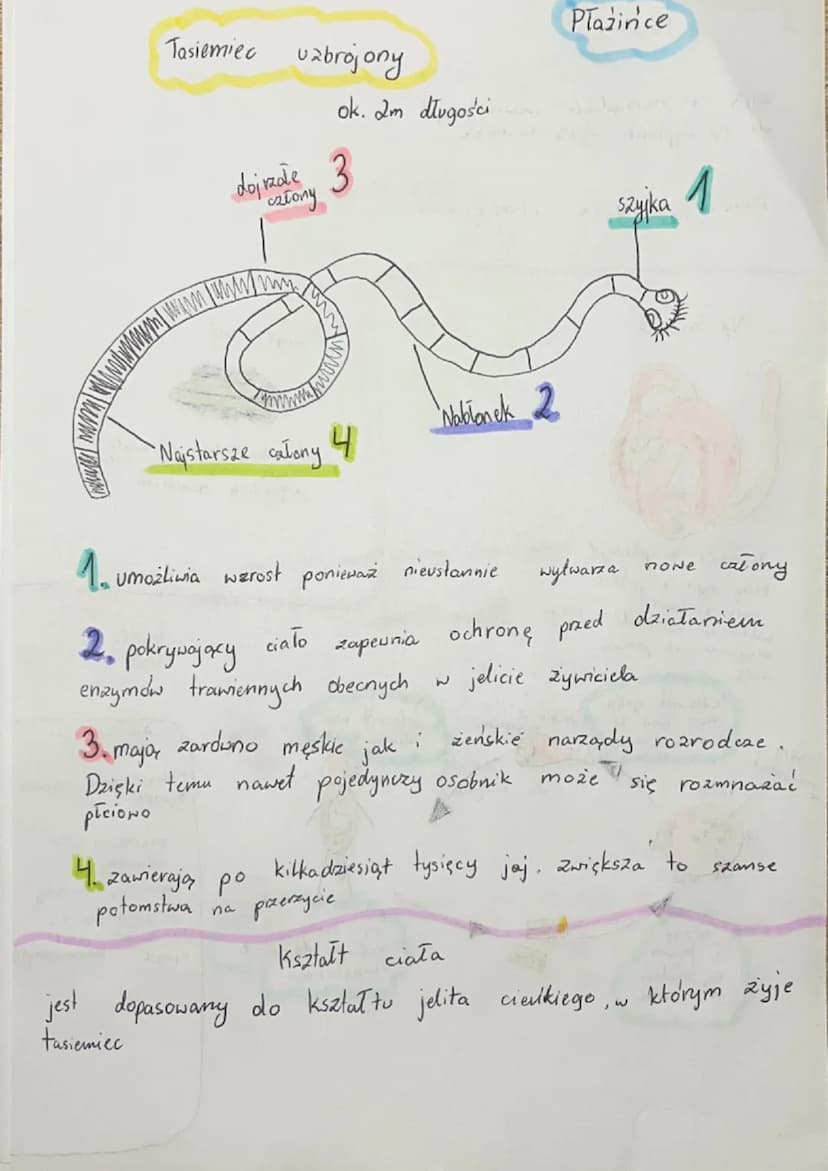 Tasiemiec uzbrojony
Płazińce
ok. 2m długości
dojrzałe 3
człony
szyjka 1
Nabłonek 2
Najstarsze człony 4
1. umożliwia wzrost ponieważ nieustannie wytwarza nowe człony
2. pokrywający ciało zapewnia ochronę przed działaniem
enzymów trawiennych obecnych w jelicie żywiciela
3. mają zarówno męskie jak i żeńskie narządy rozrodcze.
Dzięki temu nawet pojedynczy osobnik może się rozmnażać
płciowo
4. zawierają po kilkadziesiąt tysięcy jaj. zwiększa to szanse
potomstwa na przeżycie
Kształt ciała
jest dopasowany do kształtu jelita cienkiego, w którym żyje
tasiemiec